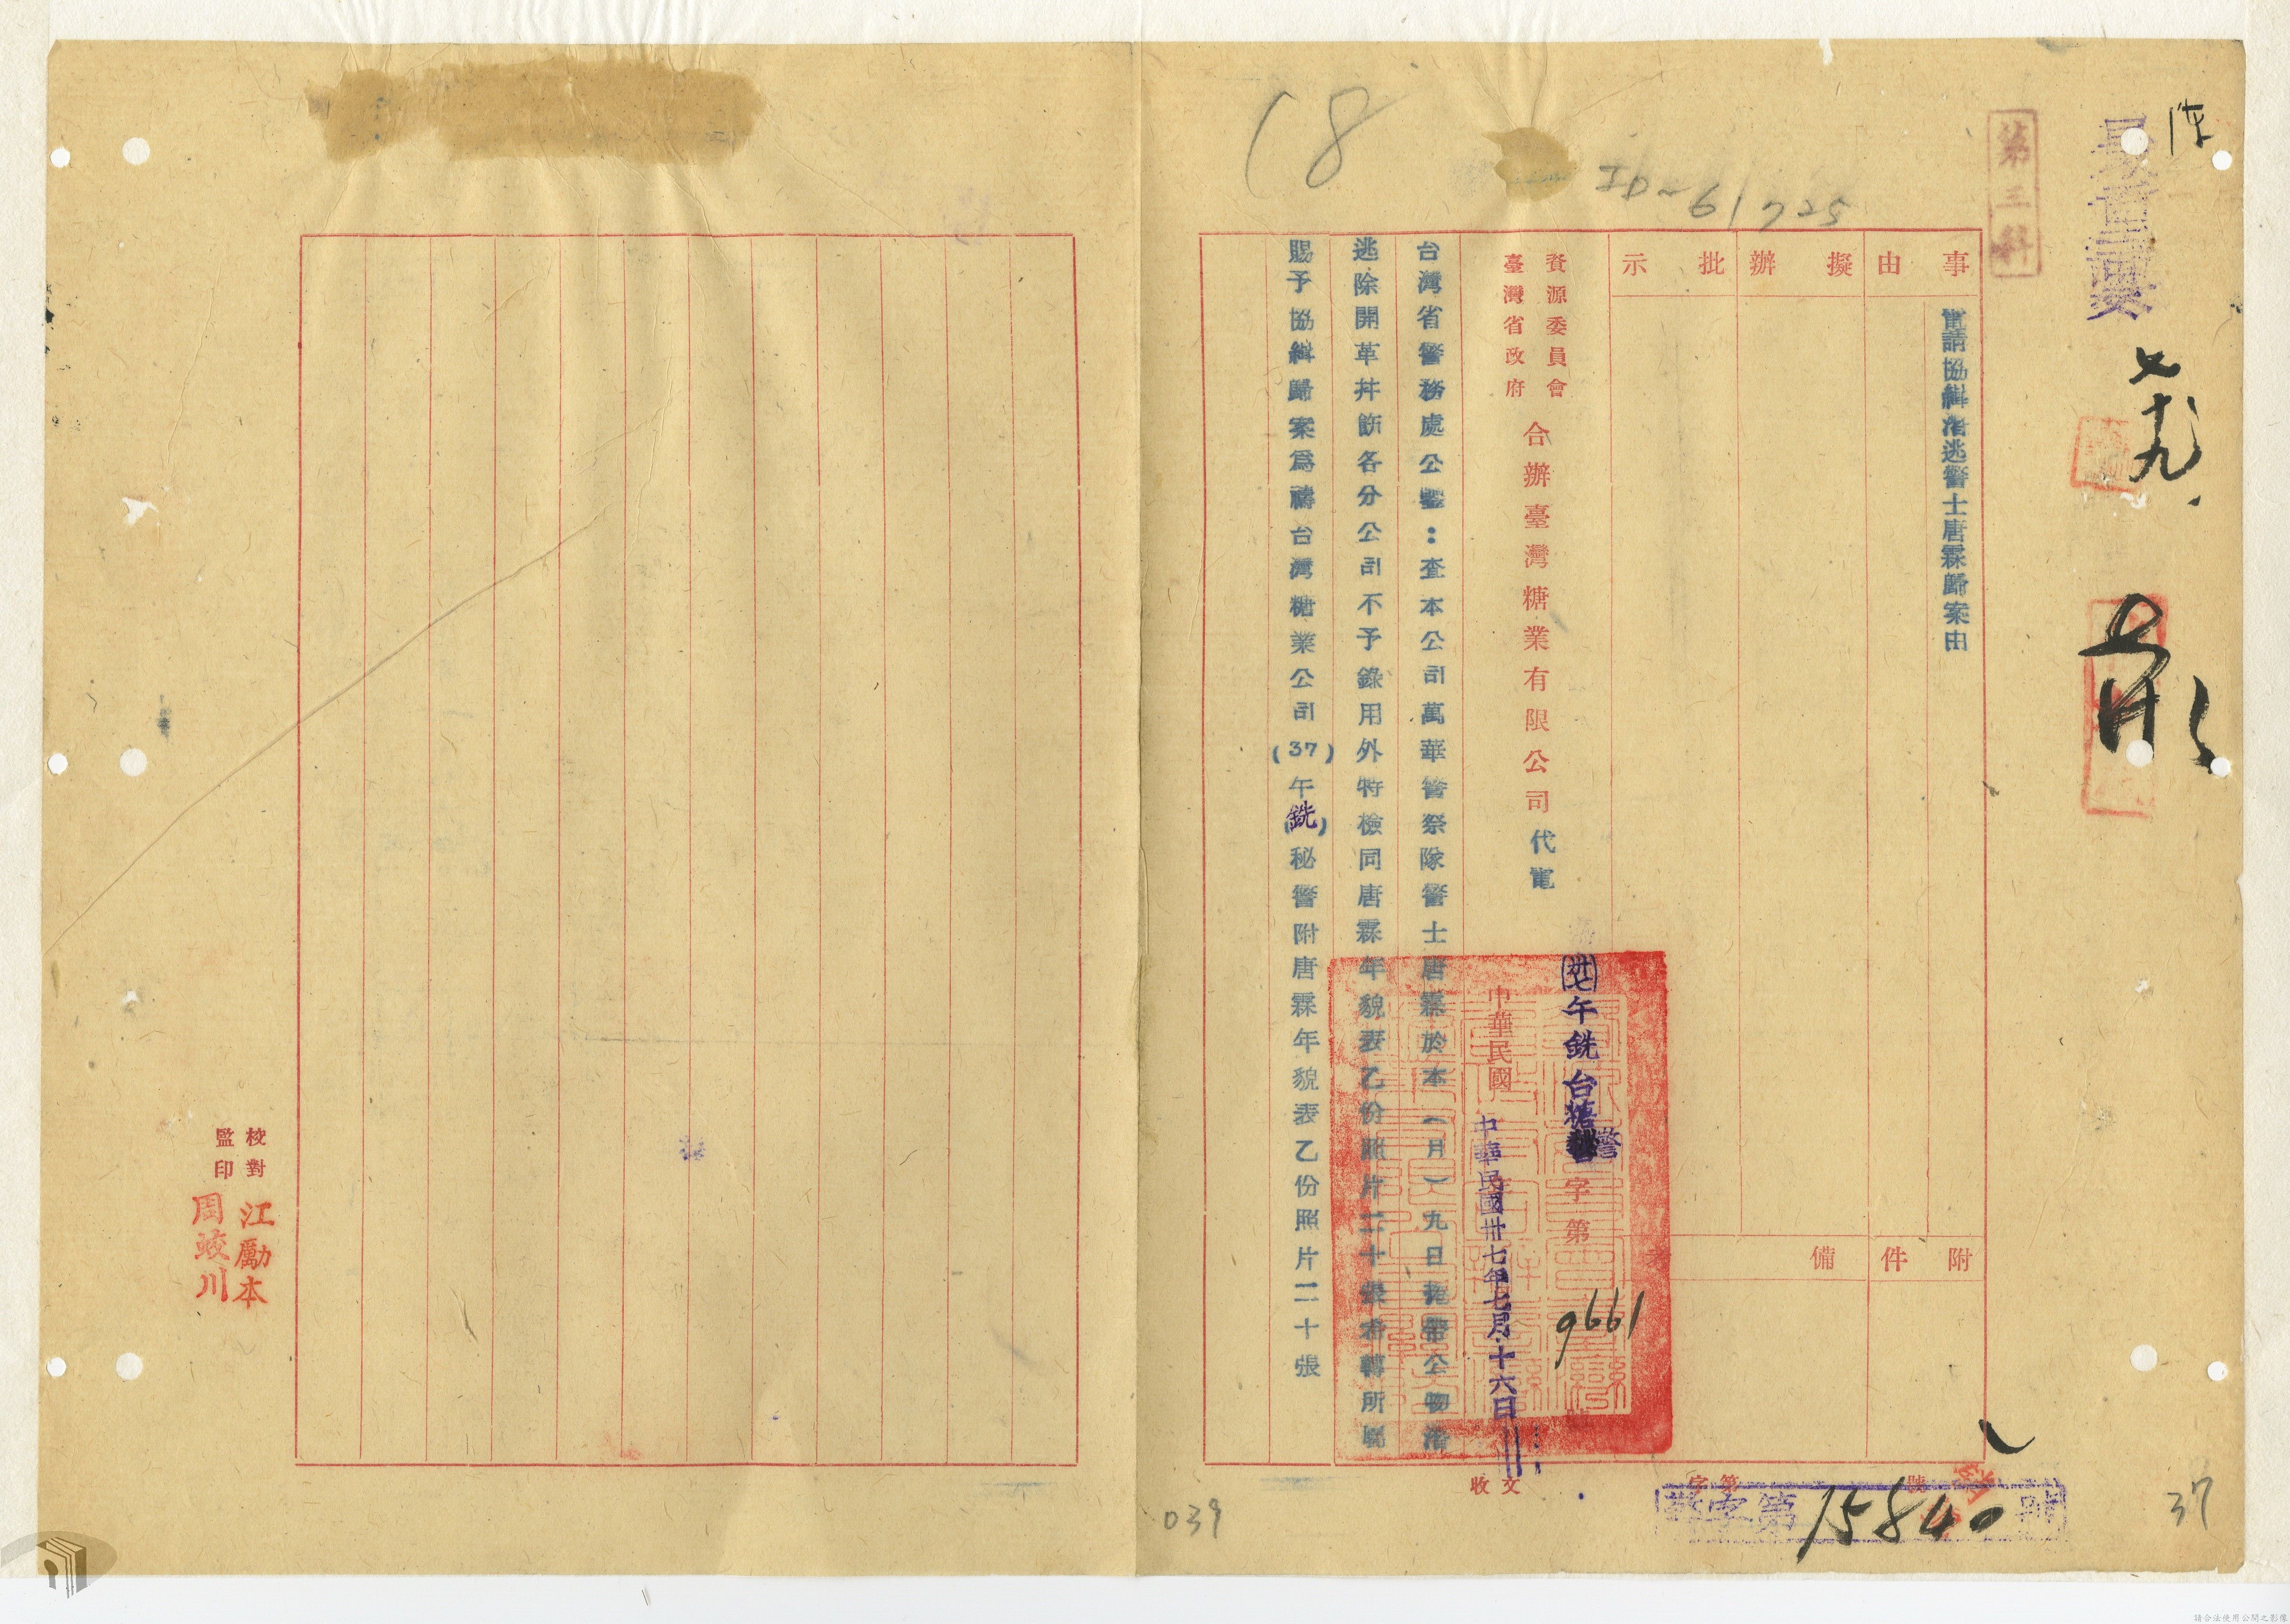 18
ID~61725
第三科
七十九
事由
擬辦
批示
電請協緝潛逃警士唐霖歸案由
附件
備考
資源委員會
臺灣省政府
合辦臺灣糖業有限公司代電
卅七午銑台糖警字第9661號
中華民國
中華民國卅七年七月十六日
台灣省警務處公鑒：查本公司萬華警察隊警士唐霖於本（月）九日捲帶公物潛
逃除開革并飭各分公司不予錄用外特檢同唐霖年貌表乙份照片二十張希轉所屬
賜予協緝歸案為禱台灣糖業公司(37)午(銑)秘警附唐霖年貌表乙份照片二十張
收文
字第
號
字第15840號
校對 江勵本
監印 周蛟川
039
37
請合法使用公開之影像